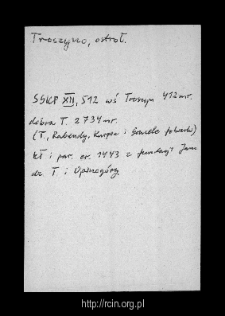 Troszyno, ostroł.
SGKP XII, 512 wś Troszyn 412 mr.
dobra T. 2734 mr.
(T., Rabendy, Karpie i folwarki)
kł i par. er. 1443 z fundacji Jana
dz. T. i Opinogóry
http://rcin.org.pl